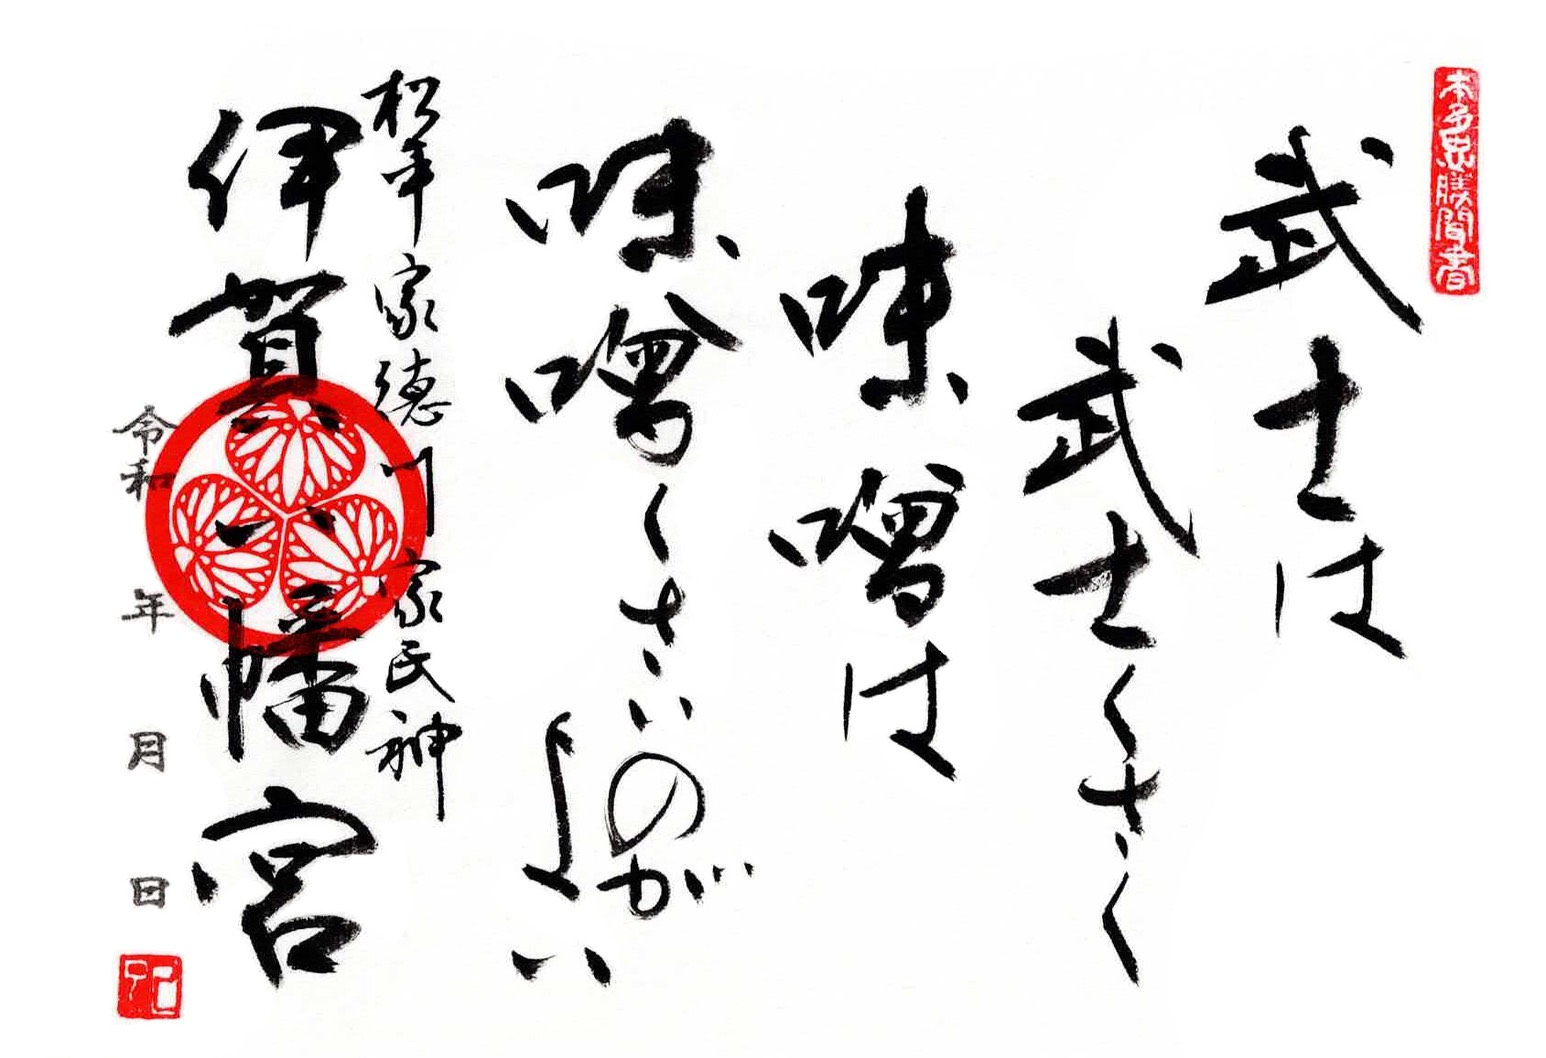 本多忠勝聞書
武士は
武士くさく
味噌は
味噌くさいのが
よい
松平家徳川家氏神
伊賀八幡宮
令和 年 月 日